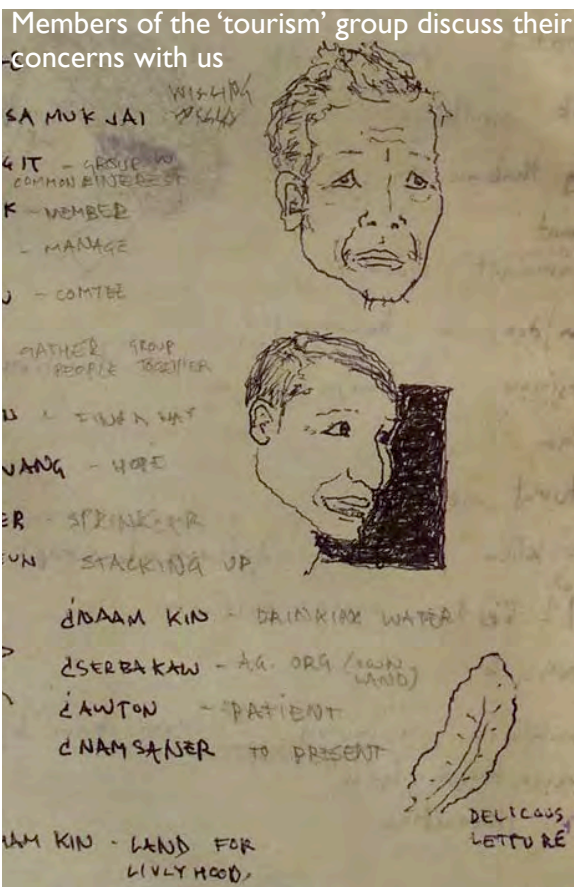 Members of the ‘tourism’ group discuss their
concerns with us
WILLING
SA MUK JAI
GIT - GROUP W
COMMON INTEREST
K - MEMBER
- MANAGE
- COMTEE
GATHER GROUP
PEOPLE TOGETHER
N - FIND A WAY
WANG - HOPE
ER - SPRINKER
UN STACKING UP
NAAM KIN - DRINKING WATER
SERBAKAW - AG. ORG (OWN
LAND)
AWTON - PATIENT
NAMSANER TO PRESENT
DELICOUS
LETTURE
HAM KIN - LAND FOR
LIVLYHOOD.